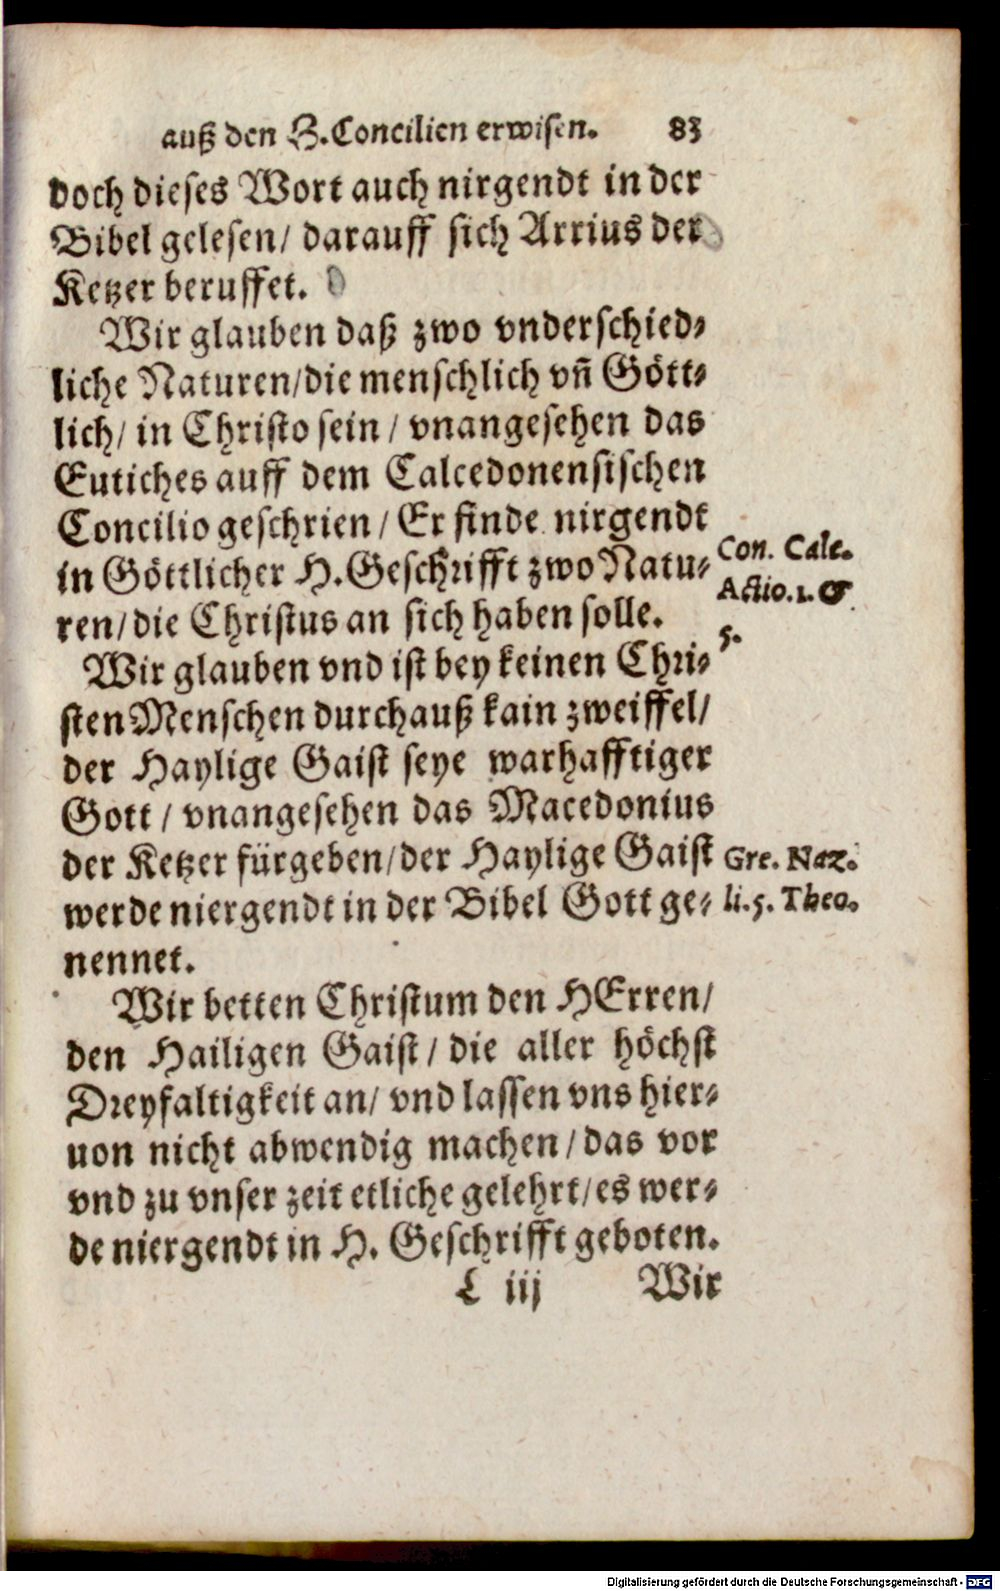 auß den H.Concilien erwisen. 83
doch dieses Wort auch nirgendt in der
Bibel gelesen/ darauff sich Arrius der
Ketzer beruffet.
Wir glauben daß zwo vnderschied⸗
liche Naturen/die menschlich vñ Gött⸗
lich/ in Christo sein/ vnangesehen das
Eutiches auff dem Calcedonensischen
Concilio geschrien/ Er finde nirgendt
in Göttlicher H.Geschrifft zwo Natu⸗
ren/die Christus an sich haben solle.
Con. Calc.
Actio.1.&
5.
Wir glauben vnd ist bey keinen Chri⸗
sten Menschen durchauß kain zweiffel/
der Haylige Gaist seye warhafftiger
Gott/ vnangesehen das Macedonius
der Ketzer fürgeben/der Haylige Gaist
werde niergendt in der Bibel Gott ge⸗
nennet.
Gre. Naz.
li.5. Theo.
Wir betten Christum den HErren/
den Hailigen Gaist/ die aller höchst
Dreyfaltigkeit an/ vnd lassen vns hier⸗
uon nicht abwendig machen/das vor
vnd zu vnser zeit etliche gelehrt/es wer⸗
de niergendt in H. Geschrifft geboten.
L iij Wir
Digitalisierung gefördert durch die Deutsche Forschungsgemeinschaft - DFG